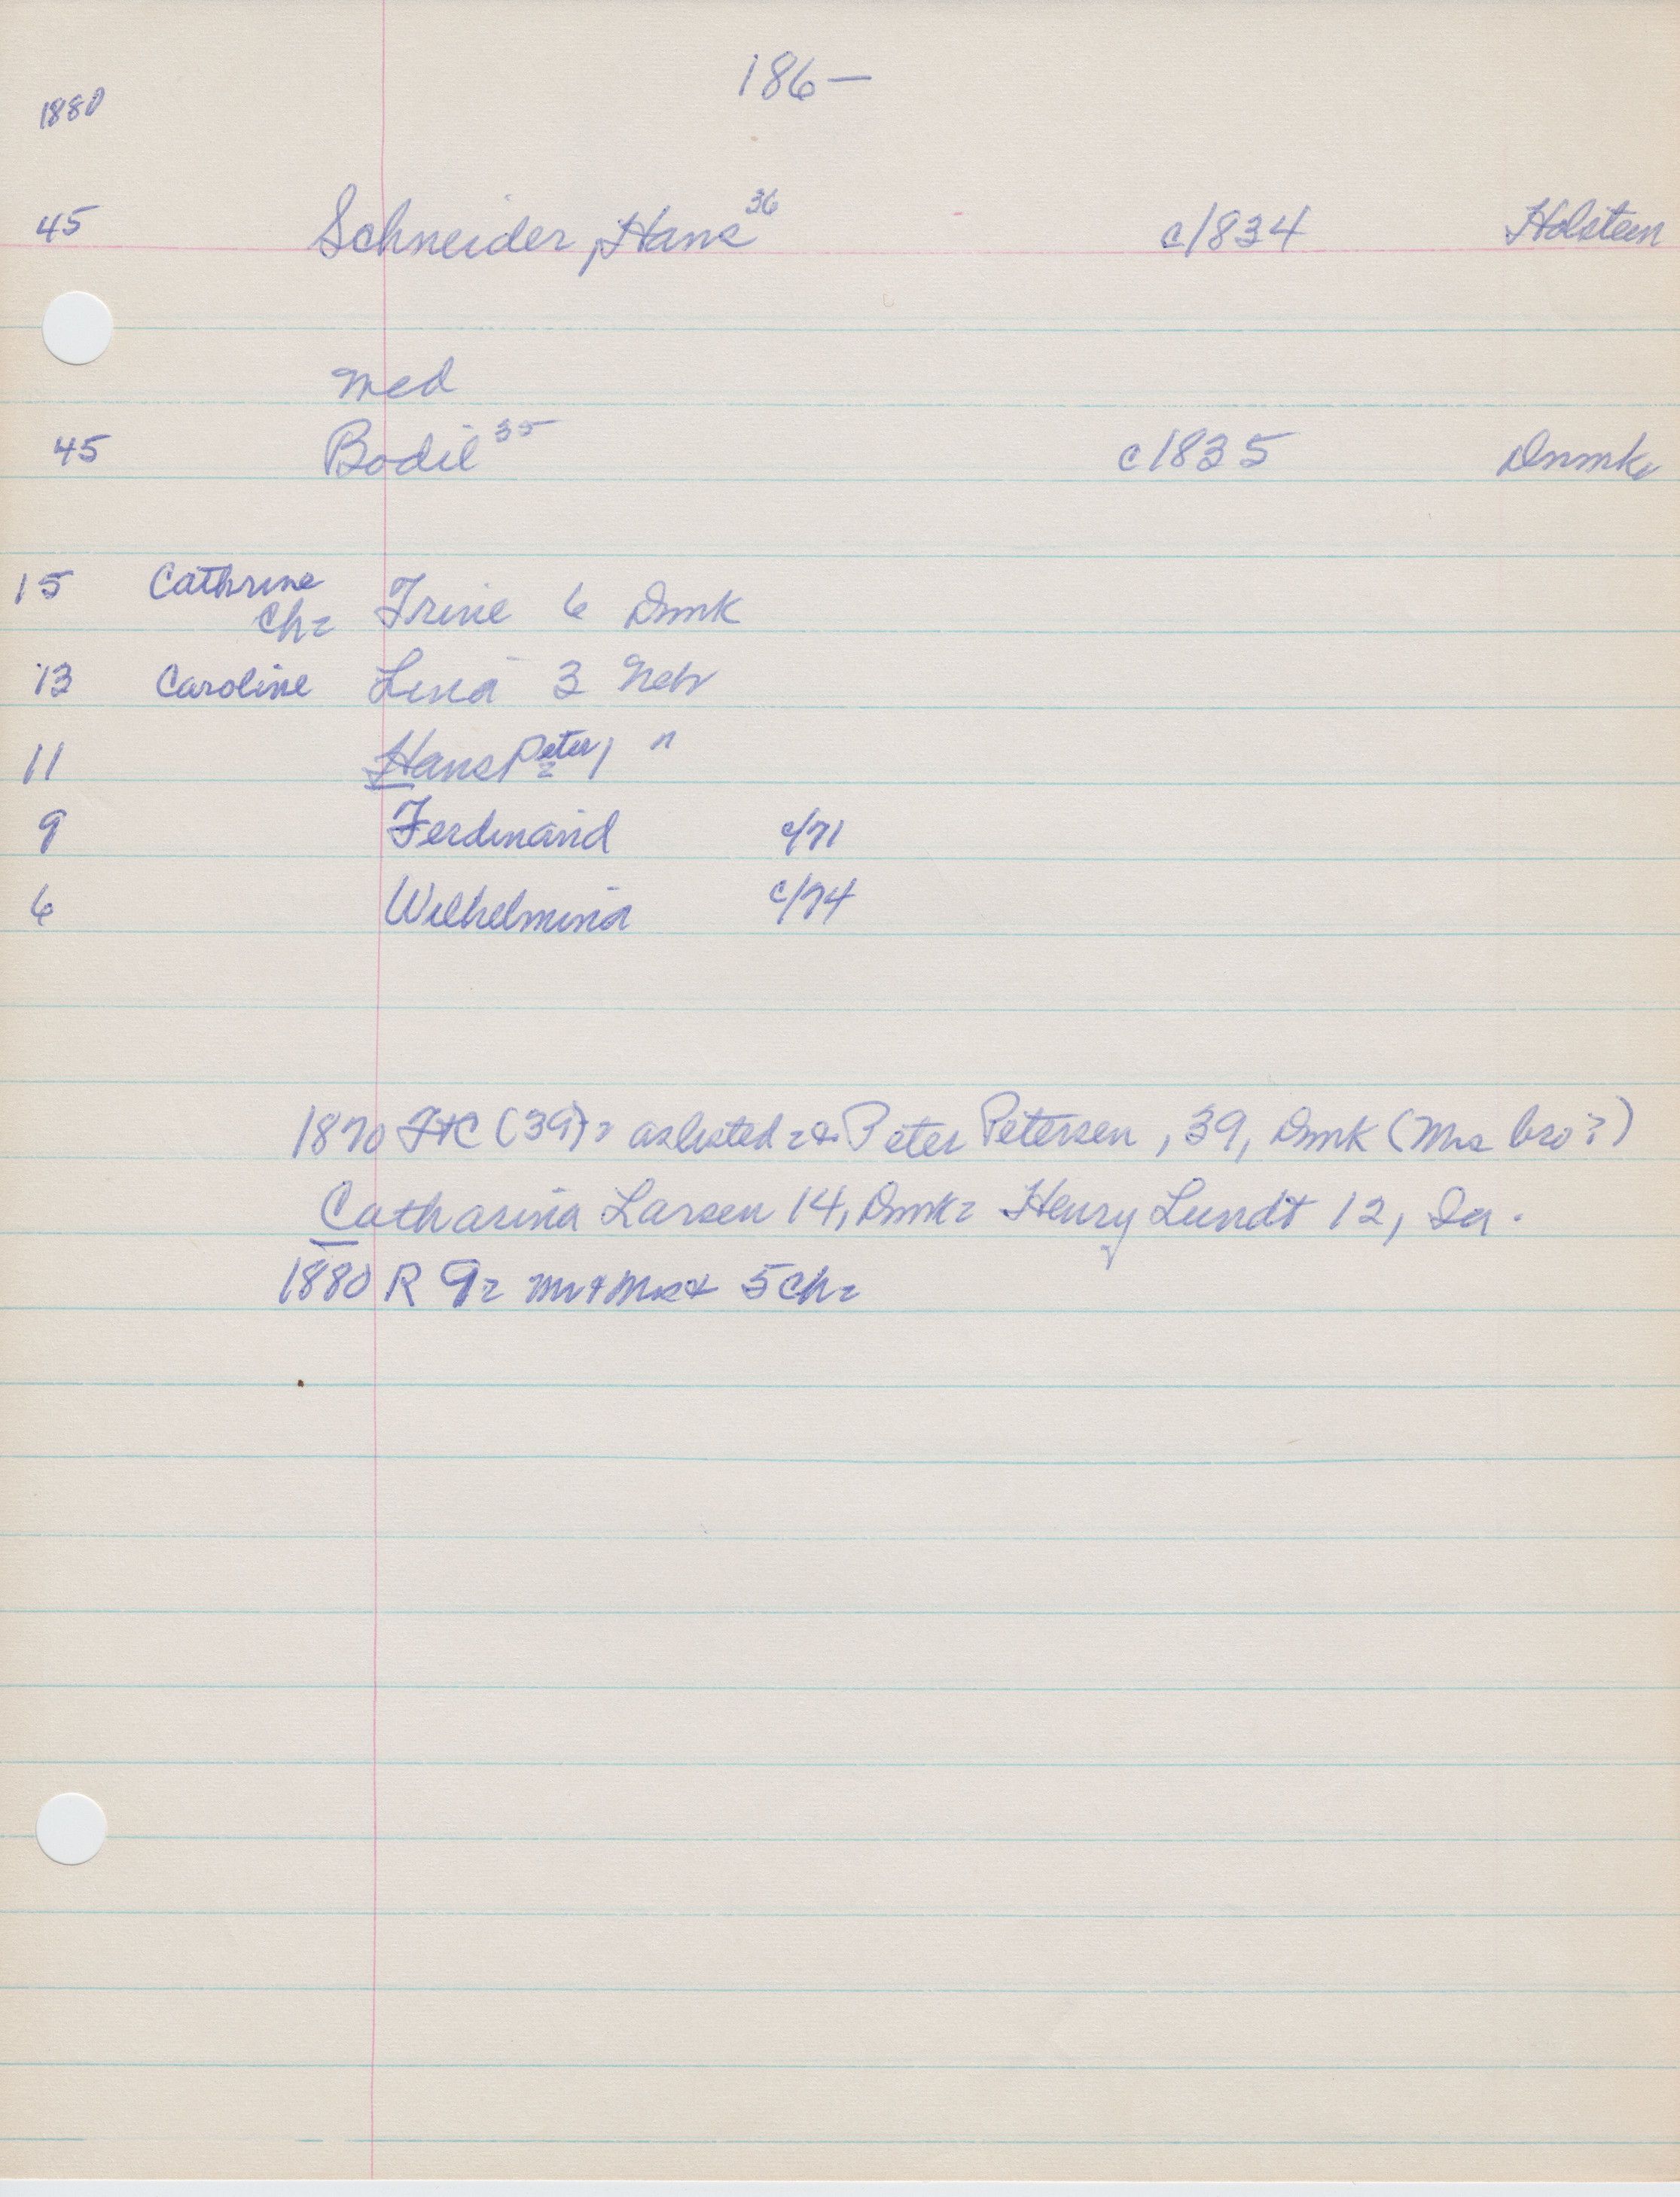 186—
1880
45 Schneider, Hans 36 c/1834 Holstein
med
45 Bodil 35 c1835 Dnmk
15 Cathrine
Ch= Trine 6 Dmk
13 Caroline Lina 3 Neb
11 Hans Peter 1 "
9 Ferdinand c/71
6 Wilhelmina c/74
1870 (39)= as listed = & Peter Petersen, 39, Dmk (Mrs bro?)
Catharina Larsen 14, Dmk = Henry Lundt 12, Ia.
1880 R 9= Mr & Mrs & 5 Ch=